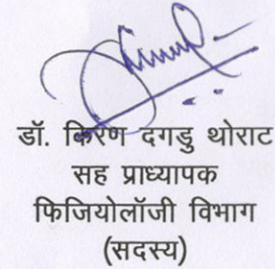 डॉ. किरण दगडु थोराट
सह प्राध्यापक
फिजियोलॉजी विभाग
(सदस्य)